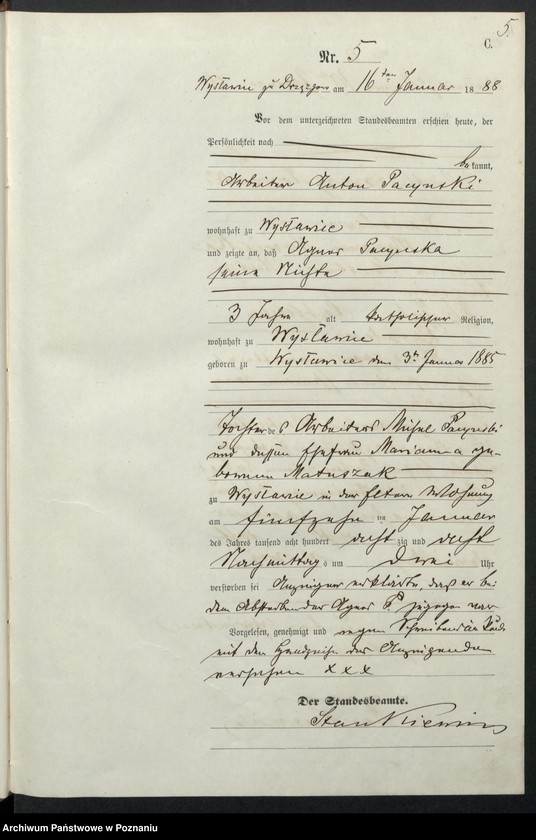 5.
C.
Nr. 5
am 16 ten Januar 1888
Vor dem unterzeichneten Standesbeamten erschien heute, der
Persönlichkeit nach
bekannt,
Arbeiter Anton Pacynski
wohnhaft zu Wysławice
und zeigte an, daß Agnes Pacynska
seine Nichte
3 Jahre alt katholischer Religion,
wohnhaft zu Wysławice
geboren zu Wysławice den 3ten Januar 1885
Tochter des Arbeiters Michel Pacynski
und dessen Ehefrau Marianna ge-
borenen Matuszak
zu Wysławice in der Eltern Wohnung
am fünfzehn ten Januar
des Jahres tausend acht hundert achtzig und acht
Nachmittags um drei Uhr
verstorben sei Anzeigender erklärte, daß er bei
dem Absterben der Agnes P. zugegen war
Vorgelesen, genehmigt und wegen
mit den Handzeichen des Anzeigenden
versehen x x x
Der Standesbeamte.
Stankiewicz
Archiwum Państwowe w Poznaniu